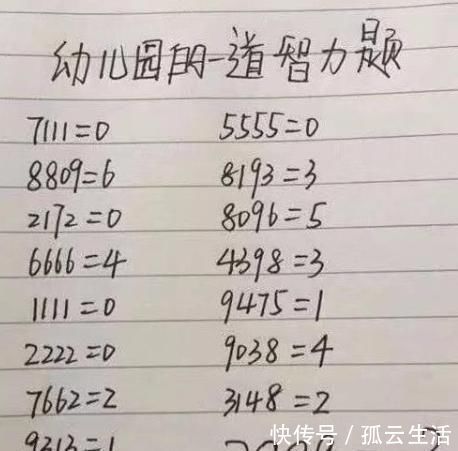 幼儿园的一道智力题
7111=0 5555=0
8809=6 8193=3
2172=0 8096=5
6666=4 4398=3
1111=0 9475=1
2222=0 9038=4
7662=2 3148=2
9313=1
快传号/孤云生活